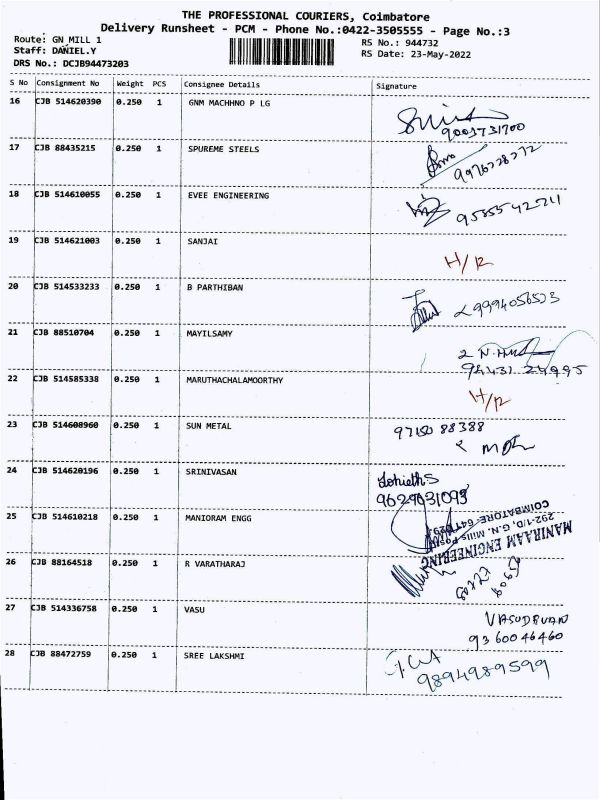 THE PROFESSIONAL COURIERS, Coimbatore
Delivery Runsheet - PCM - Phone No.:0422-3505555 - Page No.:3
Route: GN MILL 1
RS No.: 944732
Staff: DANIEL.Y
RS Date: 23-May-2022
DRS No.: DCJB94473203
S No Consignment No Weight PCS Consignee Details Signature
16 CJB 514620390 0.250 1 GNM MACHHNO P LG
17 CJB 88435215 0.250 1 SPUREME STEELS
9976728272
18 CJB 514610055 0.250 1 EVEE ENGINEERING
19 CJB 514621003 0.250 1 SANJAI
H/R
20 CJB 514533233 0.250 1 B PARTHIBAN
21 CJB 88510704 0.250 1 MAYILSAMY
22 CJB 514585338 0.250 1 MARUTHACHALAMOORTHY
H/R
23 CJB 514608960 0.250 1 SUN METAL
97150 88388
24 CJB 514620196 0.250 1 SRINIVASAN
9629031093
25 CJB 514610218 0.250 1 MANIORAM ENGG
MANIRAAM ENGINEERING
292-1/D, G.N. Mills Post,
COIMBATORE-641 029.
26 CJB 88164518 0.250 1 R VARATHARAJ
27 CJB 514336758 0.250 1 VASU
VASUDEVAN
93600 46460
28 CJB 88472759 0.250 1 SREE LAKSHMI
9894989599